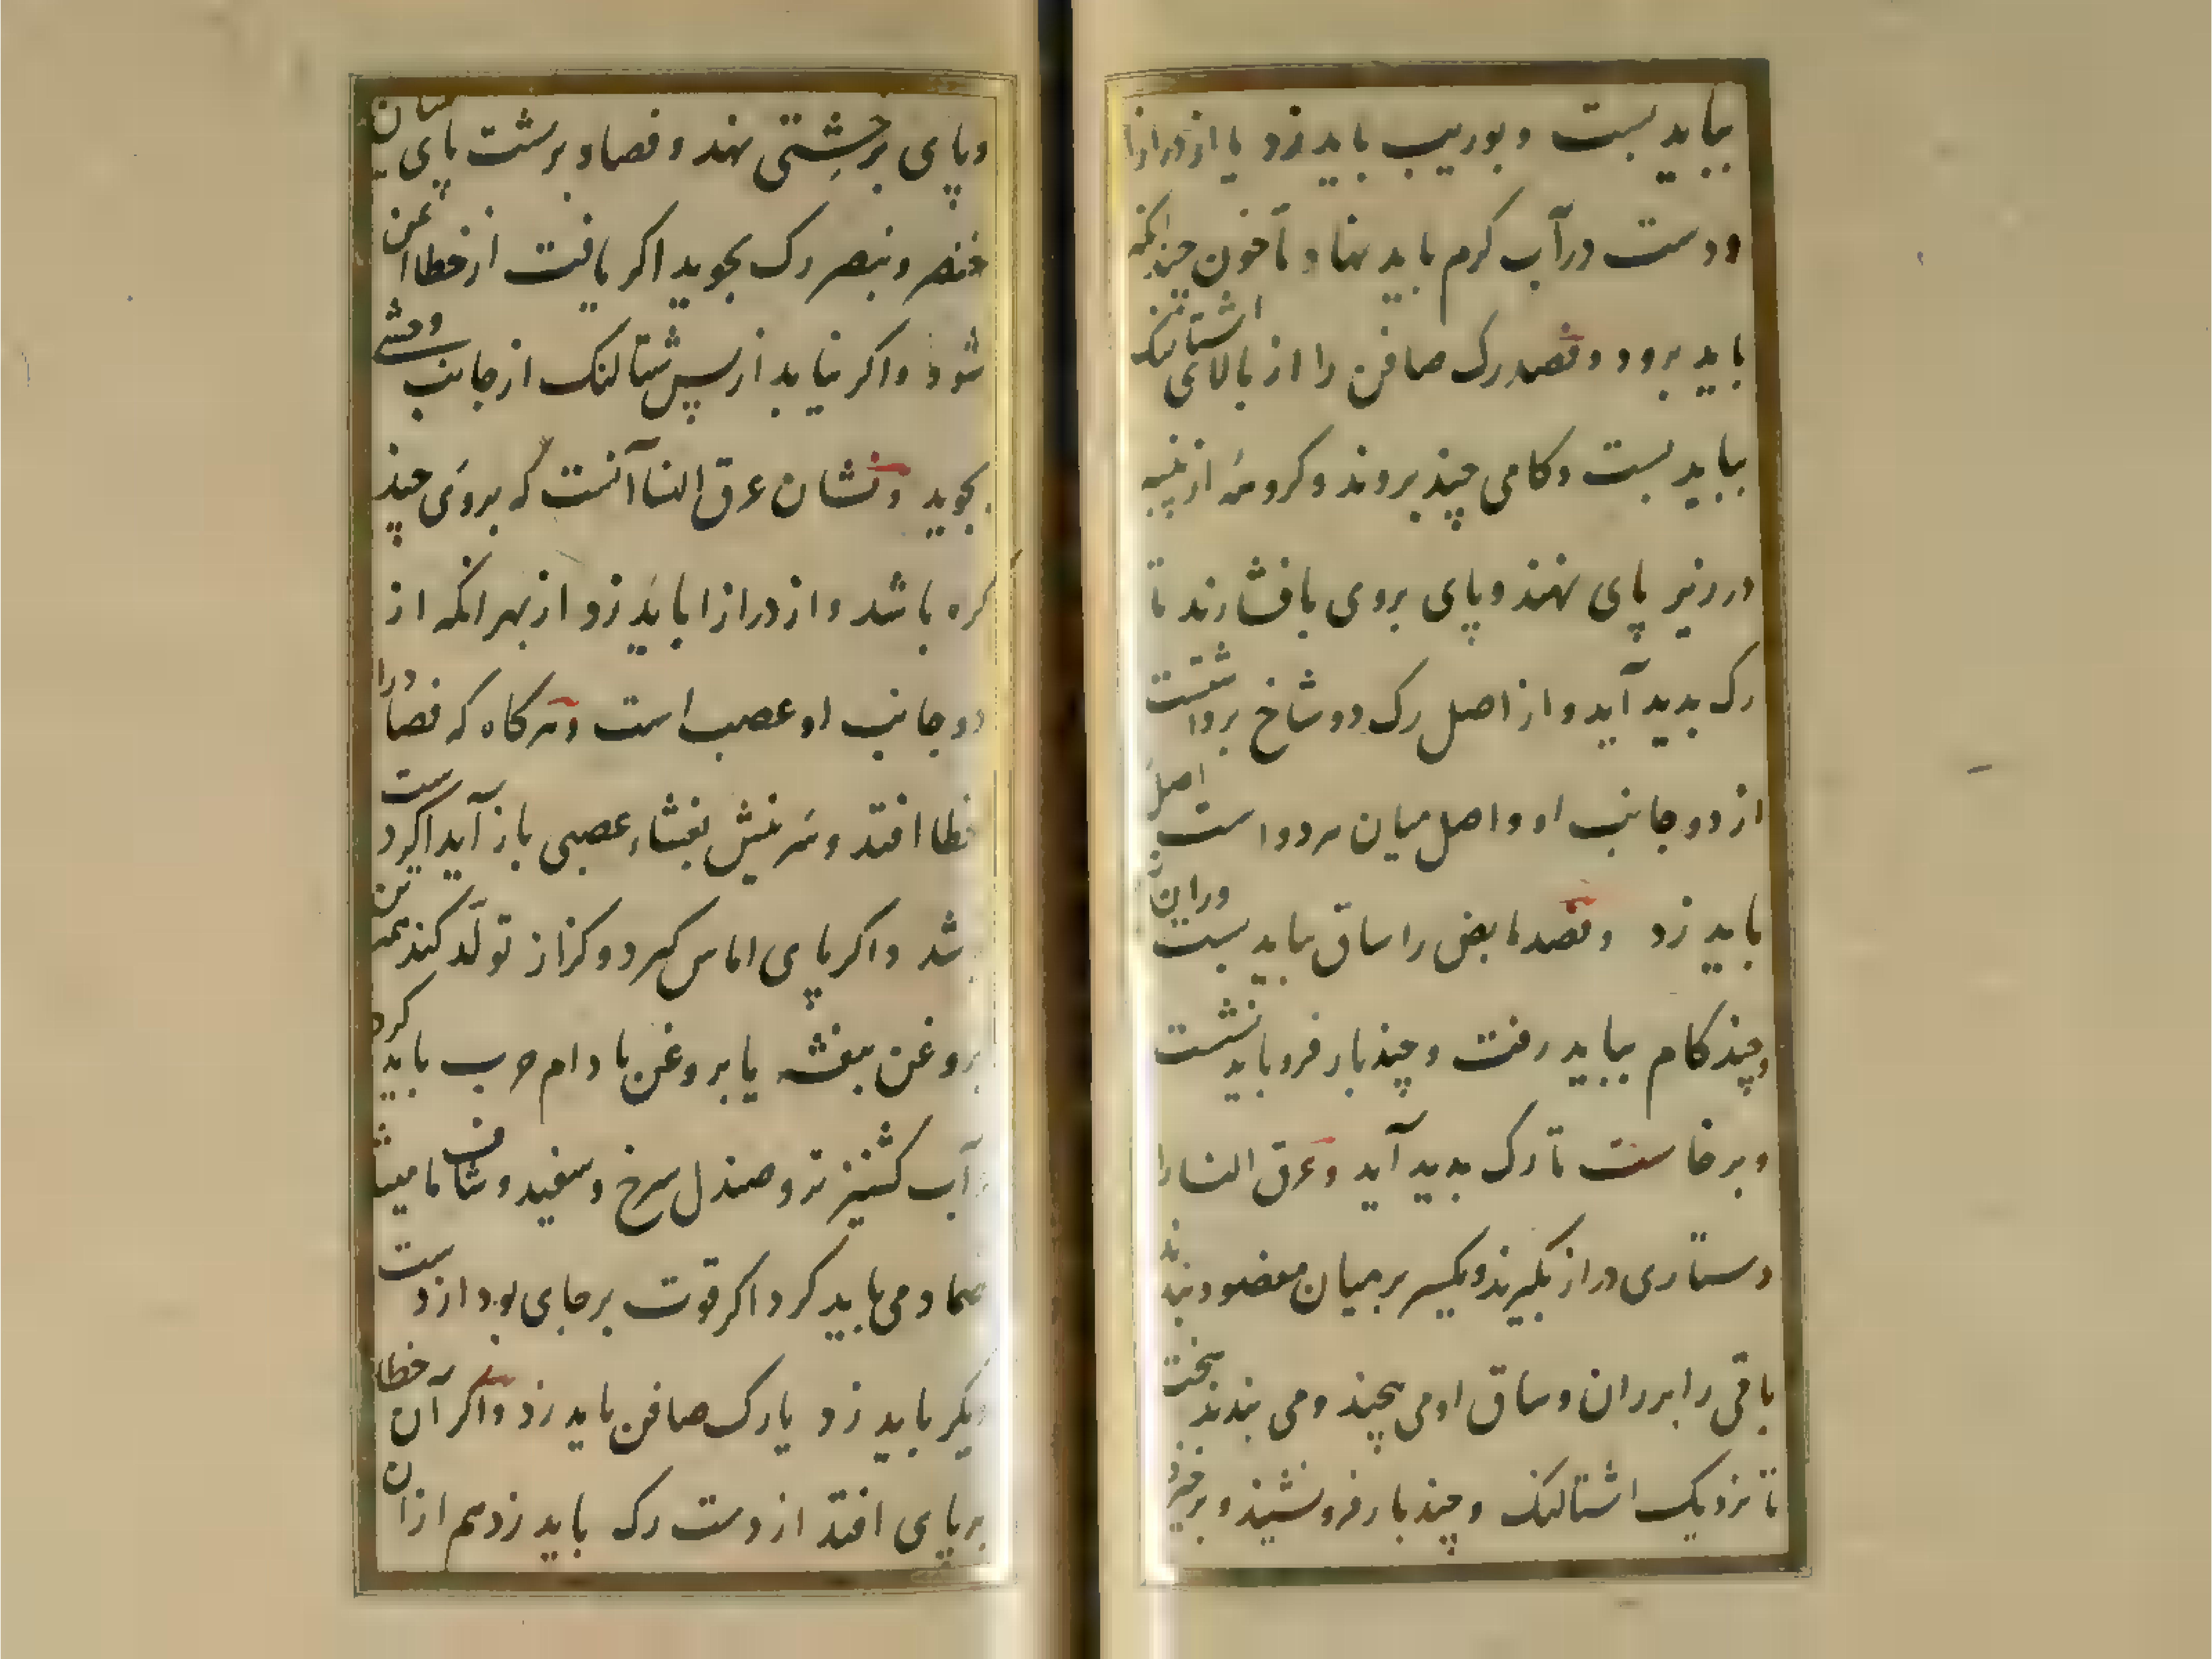 بباید بست و بوریب باید زد یا از درازنا
و دست در آب کرم باید نهاد تا خون چندانکه
باید برود و فصد رک صافن را از بالای اشتالنک
بباید بست و کامی چند بروند و کروهۀ از پنبه
در زیر پای نهند و پای بروی بافشارند تا
رک بدید آید و از اصل رک دو شاخ برداشتست
از دو جانب او و اصل میان هر دو است اصل
باید زد و فصد مابض را ساق بباید بست و ران
و چند کام بباید رفت و چند بار فرو باید نشست
و برخاست تا رک بدید آید و عرق النسا را
دستاری دراز بکیرند و یکسر بر میان مفصود بندند
باقی را بر ران و ساق او می پیچند و می بندند سخت
تا نزدیک اشتالنک و چند بار فرو نشیند و برخیزد
و پای بر خشتی نهد و فصاد بر پشت پای میان
خنصر و بنصر رک بجوید اکر یافت از خطا ایمن
شود و اکر نیابد از پس شتالنک از جانب وحشی
بجوید و نشان عرق النسا آنست که بروی چند
کره باشد و از درازا باید زد از بهر انکه از
دو جانب او عصب است و هر کاه که فصاد را
خطا افتد و سر نیش بغشاء عصبی باز آید اکر دست
باشد و اکر پای اماس کیرد و کزاز تولد کند
بروغن بنفشه یا بروغن بادام چرب باید کرد
و آب کشنیز تر و صندل سرخ و سفید و شاف مامیثا
ضماد می باید کرد و اکر قوت بر جای بود از دست
دیکر باید زد یا رک صافن باید زد و اکر آن خطا
بر پای افتد از دست رک باید زد هم از ان